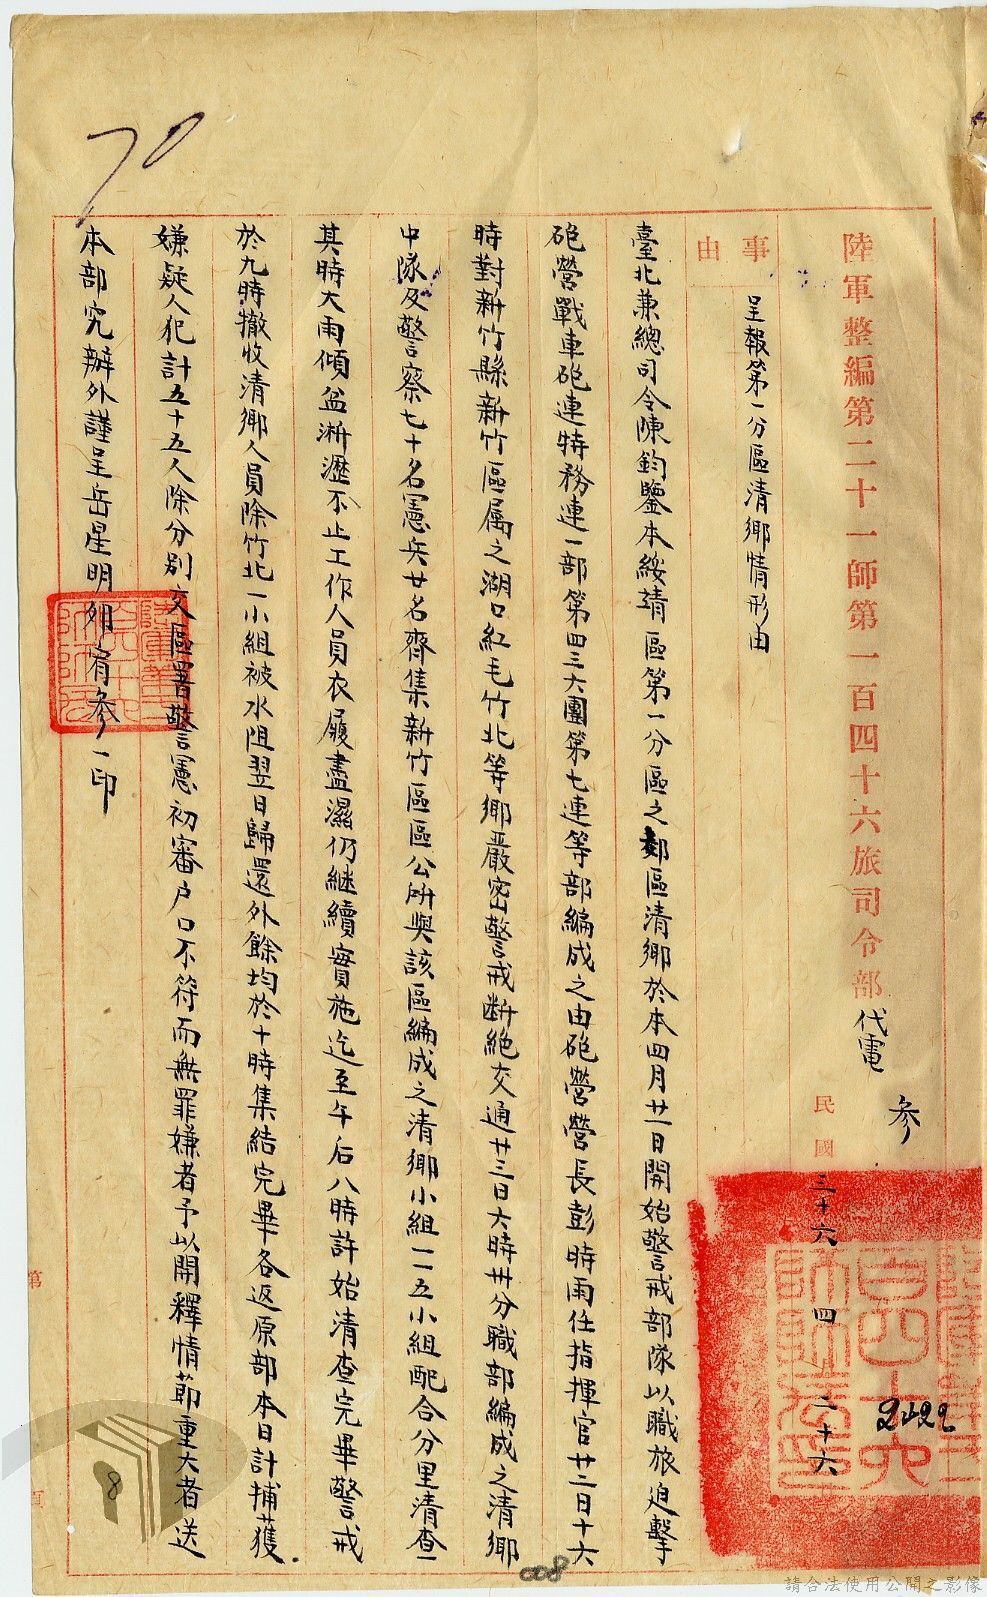 70
參
陸軍整編第二十一師第一百四十六旅司令部代電
民國三十六 四 二十六
事由
呈報第一分區清鄉情形由
臺北兼總司令陳鈞鑒本綏靖區第一分區之郊區清鄉於本四月廿一日開始警戒部隊以職旅迫擊
砲營戰車砲連特務連一部第四三六團第七連等部編成之由砲營營長彭時雨任指揮官廿二日十六
時對新竹縣新竹區属之湖口紅毛竹北等鄉嚴密警戒断絕交通廿三日六時卅分職部編成之清鄉
中隊及警察七十名憲兵廿名齊集新竹區區公所與該區編成之清鄉小組一一五小組配合分里清查
其時大雨傾盆淅瀝不止工作人員衣履盡濕仍継續實施迄至午后八時許始清查完畢警戒
於九時撤收清鄉人員除竹北一小組被水阻翌日歸還外餘均於十時集結完畢各返原部本日計捕獲
嫌疑人犯計五十五人除分別交區署警憲初審户口不符而無罪嫌者予以開釋情節重大者送
本部究辦外謹呈岳星明卯宥參一印
第 頁
8
008
請合法使用公開之影像